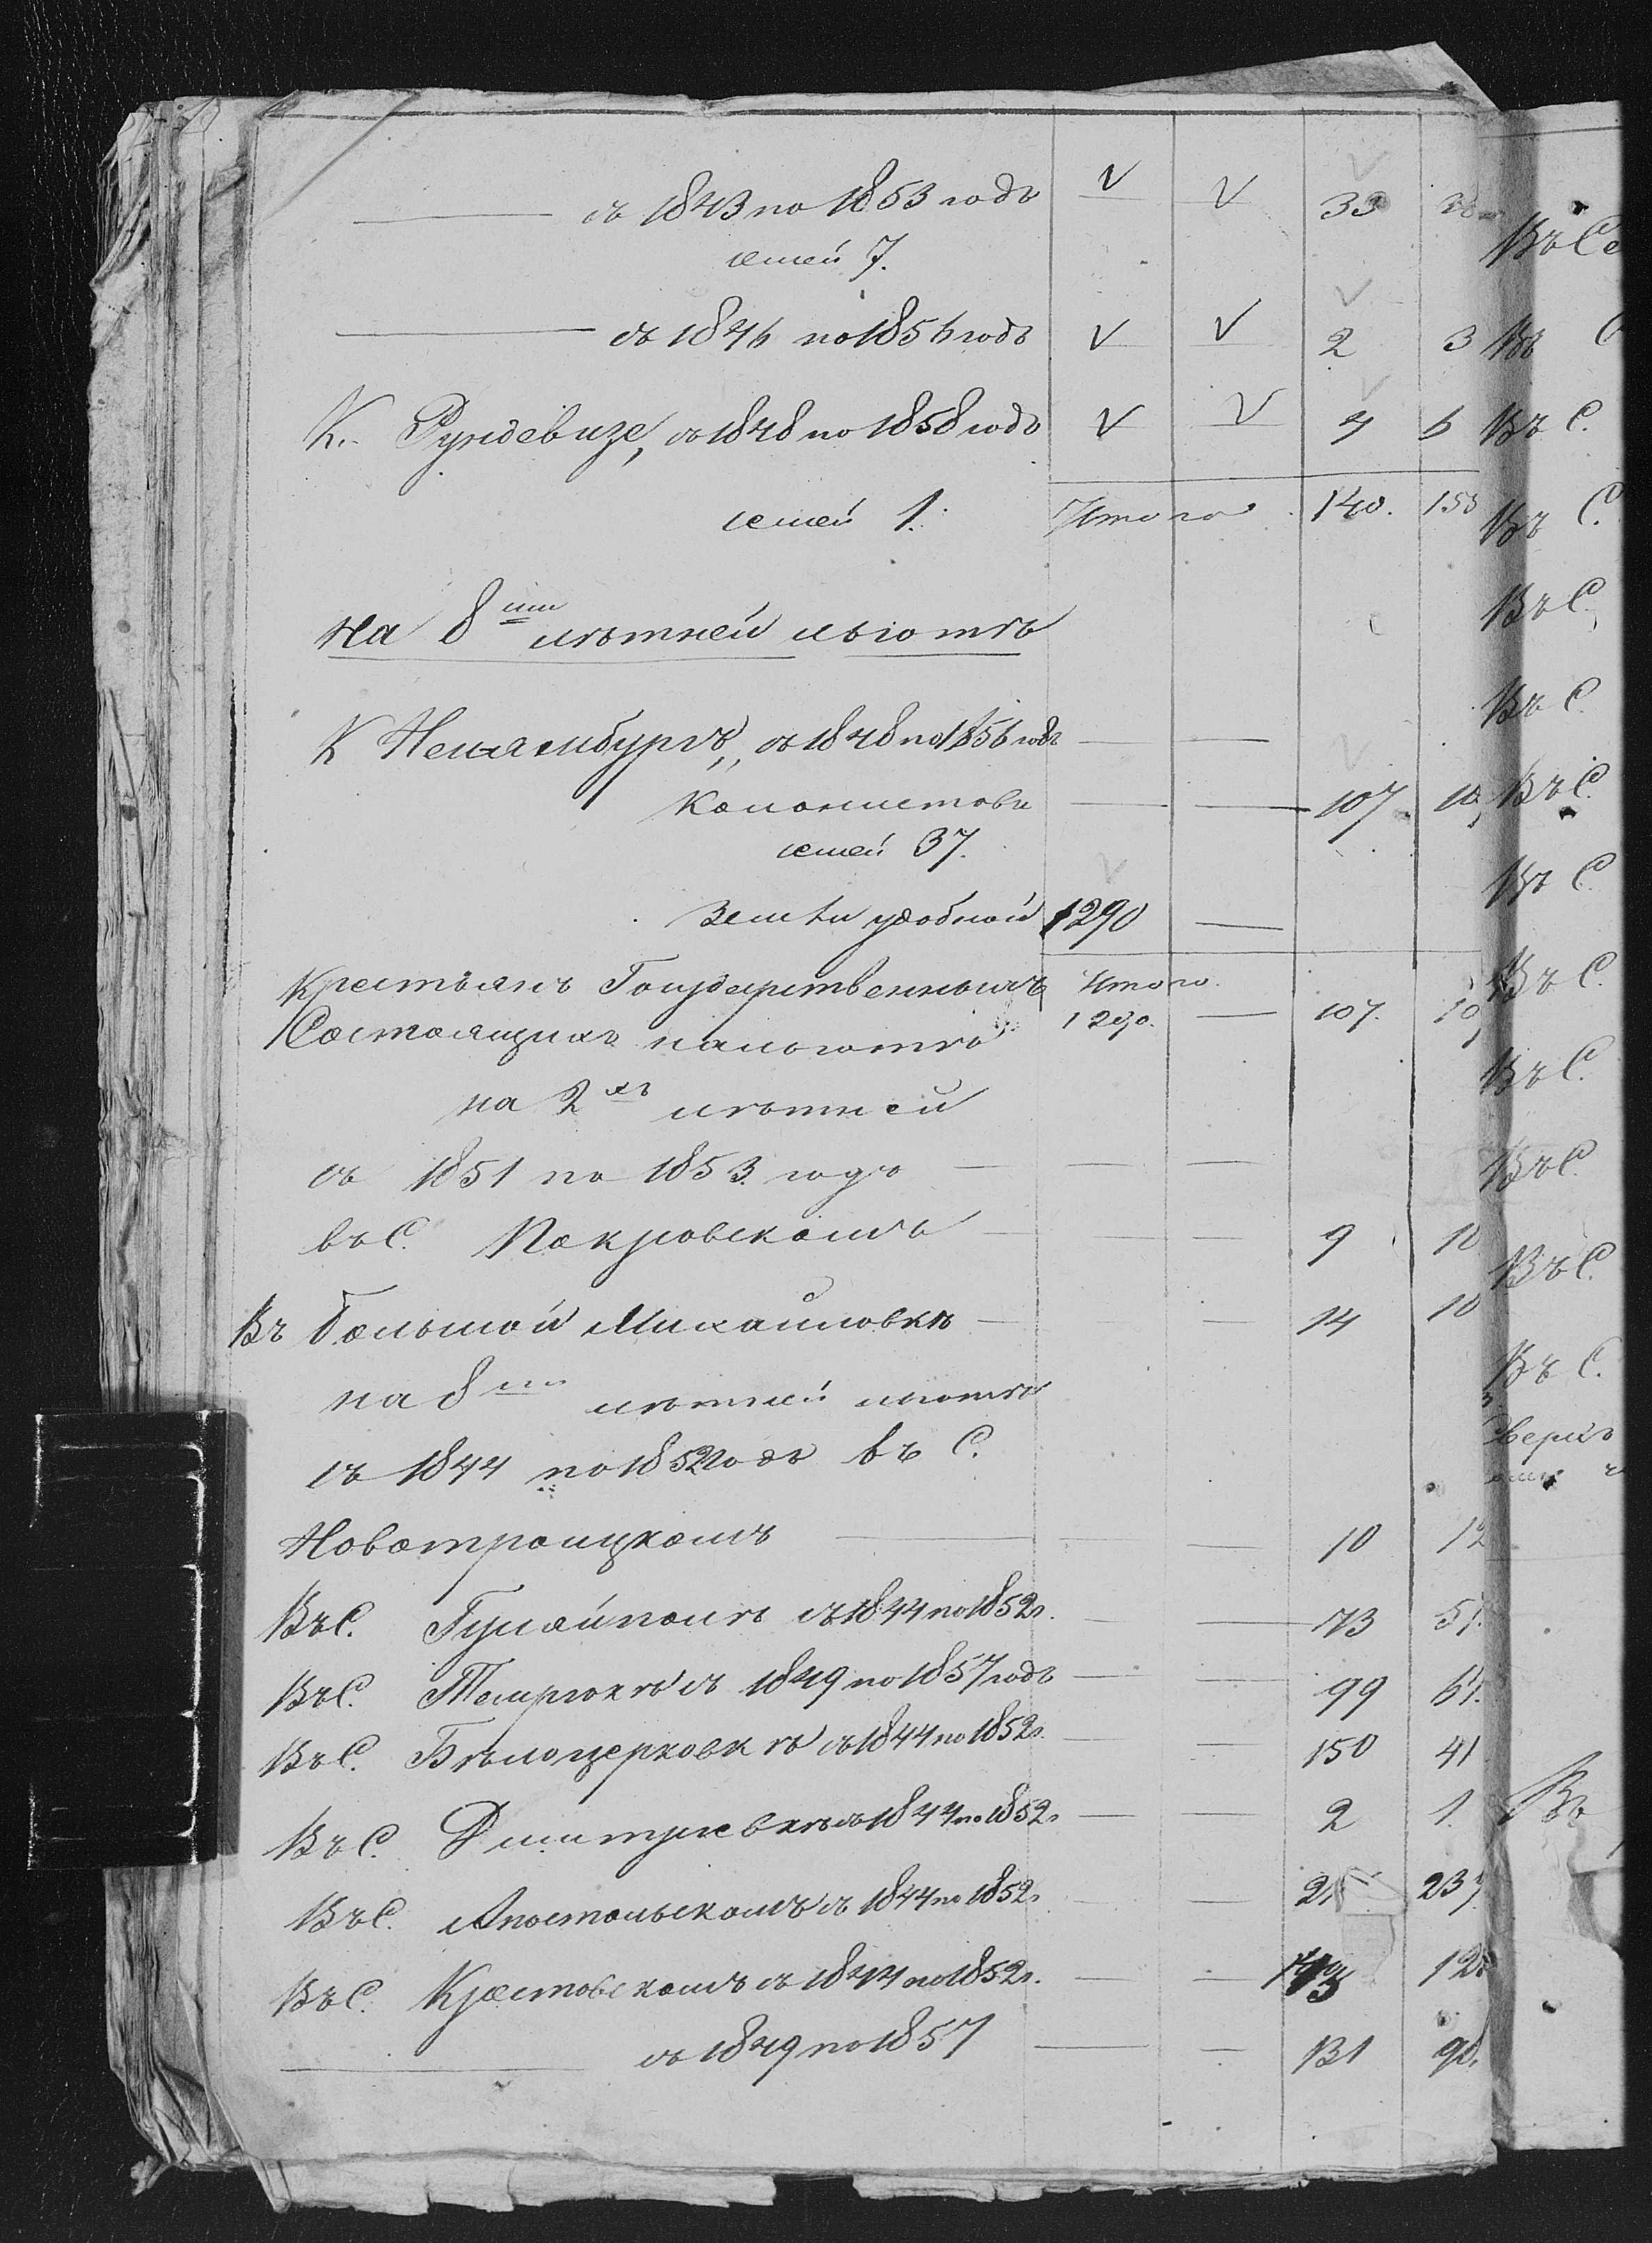 съ 1843 по 1853 годъ 33
семей 7.
съ 1846 по 1856 годъ 2 3
К. Рундевизе, съ 1848 по 1858 годъ 4 6
семей 1. Итого 140. 155
на 8ми лѣтней льготѣ
К съ 1848 по 1856 годъ
Колонистовъ 107
семей 37.
Земли удобной 1290
Крестьянъ Государственныхъ Итого
Состоящихъ на льготѣ 1290. 107.
на 2хъ лѣтней
съ 1851 по 1853. годъ
въ С. Покровскомъ 9 10
Въ большой Михайловкѣ 14 10
на 8ми лѣтней льготѣ
съ 1844 по 1852 годъ въ С.
Новотроицкомъ 10 12
Въ С. Гуляйполѣ съ 1844 по 1852 г. 173 51.
Въ С. Темрюкѣ съ 1849 по 1857 годъ 99 61.
Въ С. Бѣлоцерковкѣ съ 1844 по 1852 г. 150 41
Въ С. Дмитриевкѣ съ 1844 по 1852 г 2 1.
Въ С. Апостольскомъ съ 1844 по 1852 г
Въ С. съ 1844 по 1852 г.
съ 1849 по 1857 131
Въ С.
Въ С.
Въ С.
Въ С.
Въ С.
Въ С.
Въ С.
Въ С.
Въ С.
Въ С.
Въ С.
Въ С.
Въ С.
Въ